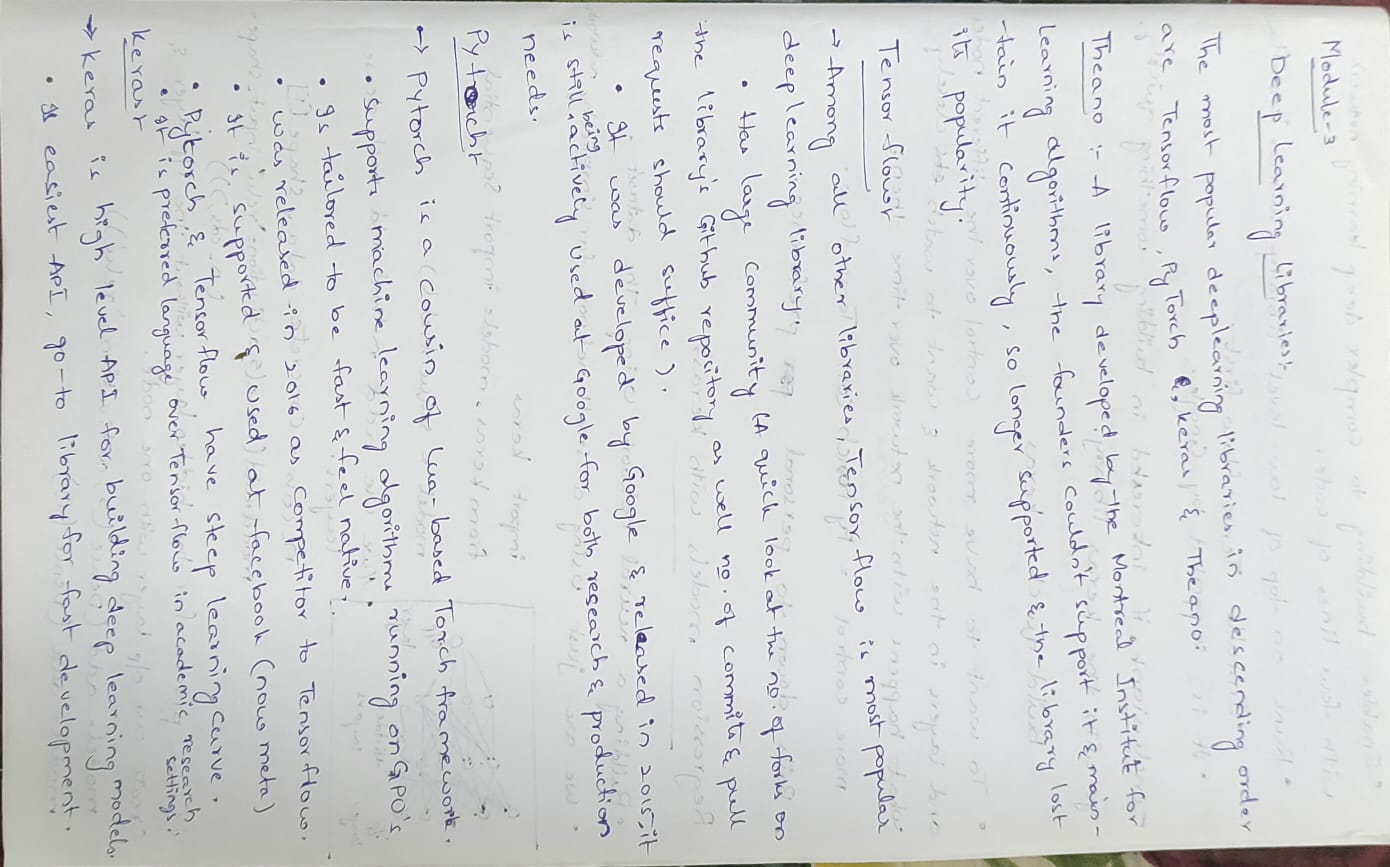 Module-3
Deep Learning Libraries:-
The most popular deeplearning libraries in descending order
are Tensorflow, PyTorch, keras & Theano.
Theano :- A library developed by the Montreal Institut for
Learning algorithms, the founders couldn't support it & main-
-tain it continuously, so longer supported & the library lost
its popularity.
Tensor flow:-
→ Among all other libraries, Tensor flow is most popular
deep learning library.
• Has large community (A quick look at the no. of forks on
the library's Github repository, as well no. of commits & pull
requests should suffice).
• It was developed by Google & released in 2015, it
is still being actively used at Google for both research & production
needs.
Pytorch:-
→ Pytorch is a cousin of Lua-based Torch framework.
• Supports machine learning algorithms running on GPU's
• Is tailored to be fast & feel native.
• was released in 2016 as competitor to Tensor flow.
• It is supported & used at facebook (now meta)
• Pytorch & Tensor flow have steep learning curve.
• It is preferred language over Tensor-flow in academic research
settings.
keras:-
→ keras is high level API for building deep learning models.
• Is easiest API, go-to library for fast development.